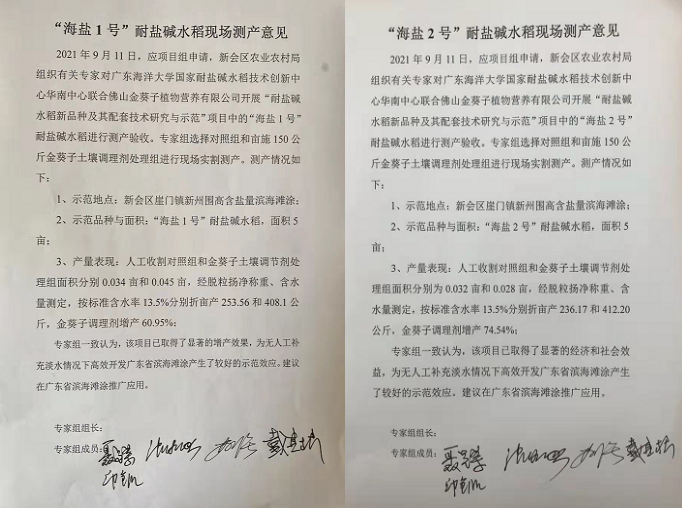 “海盐1号”耐盐碱水稻现场测产意见
2021年9月11日，应项目组申请，新会区农业农村局
组织有关专家对广东海洋大学国家耐盐碱水稻技术创新中
心华南中心联合佛山金葵子植物营养有限公司开展“耐盐碱
水稻新品种及其配套技术研究与示范”项目中的“海盐1号”
耐盐碱水稻进行测产验收。专家组选择对照组和亩施150公
斤金葵子土壤调理剂处理组进行现场实割测产。测产情况如
下：
1、示范地点：新会区崖门镇新州围高含盐量滨海滩涂；
2、示范品种与面积：“海盐1号”耐盐碱水稻，面积5
亩；
3、产量表现：人工收割对照组和金葵子土壤调节剂处
理组面积分别0.034亩和0.045亩，经脱粒扬净称重、含水
量测定，按标准含水率13.5%分别折亩产253.56和408.1公
斤，金葵子调理剂增产60.95%；
专家组一致认为，该项目已取得了显著的增产效果，为无人工补
充淡水情况下高效开发广东省滨海滩涂产生了较好的示范效应。建议
在广东省滨海滩涂推广应用。
专家组组长：
专家组成员：
“海盐2号”耐盐碱水稻现场测产意见
2021年9月11日，应项目组申请，新会区农业农村局
组织有关专家对广东海洋大学国家耐盐碱水稻技术创新中
心华南中心联合佛山金葵子植物营养有限公司开展“耐盐碱
水稻新品种及其配套技术研究与示范”项目中的“海盐2号”
耐盐碱水稻进行测产验收。专家组选择对照组和亩施150公
斤金葵子土壤调理剂处理组进行现场实割测产。测产情况如
下：
1、示范地点：新会区崖门镇新州围高含盐量滨海滩涂；
2、示范品种与面积：“海盐2号”耐盐碱水稻，面积5
亩；
3、产量表现：人工收割对照组和金葵子土壤调节剂处
理组面积分别为0.032亩和0.028亩，经脱粒扬净称重、含
水量测定，按标准含水率13.5%分别折亩产236.17和412.20
公斤，金葵子调理剂增产74.54%；
专家组一致认为，该项目已取得了显著的经济和社会效
益，为无人工补充淡水情况下高效开发广东省滨海滩涂产生
了较好的示范效应，建议在广东省滨海滩涂推广应用。
专家组组长：
专家组成员：